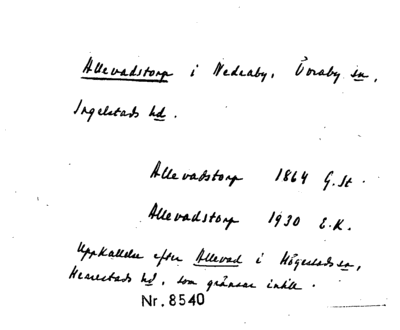 Allevadstorp i Nedraby, Övraby sn,
Ingelstads hd.
Allevadstorp 1864 G. St.
Allevadstorp 1930 E.K.
Uppkallelse efter Allevad i Högestads sn,
Herrestads hd, som gränsar intill.
Nr. 8540